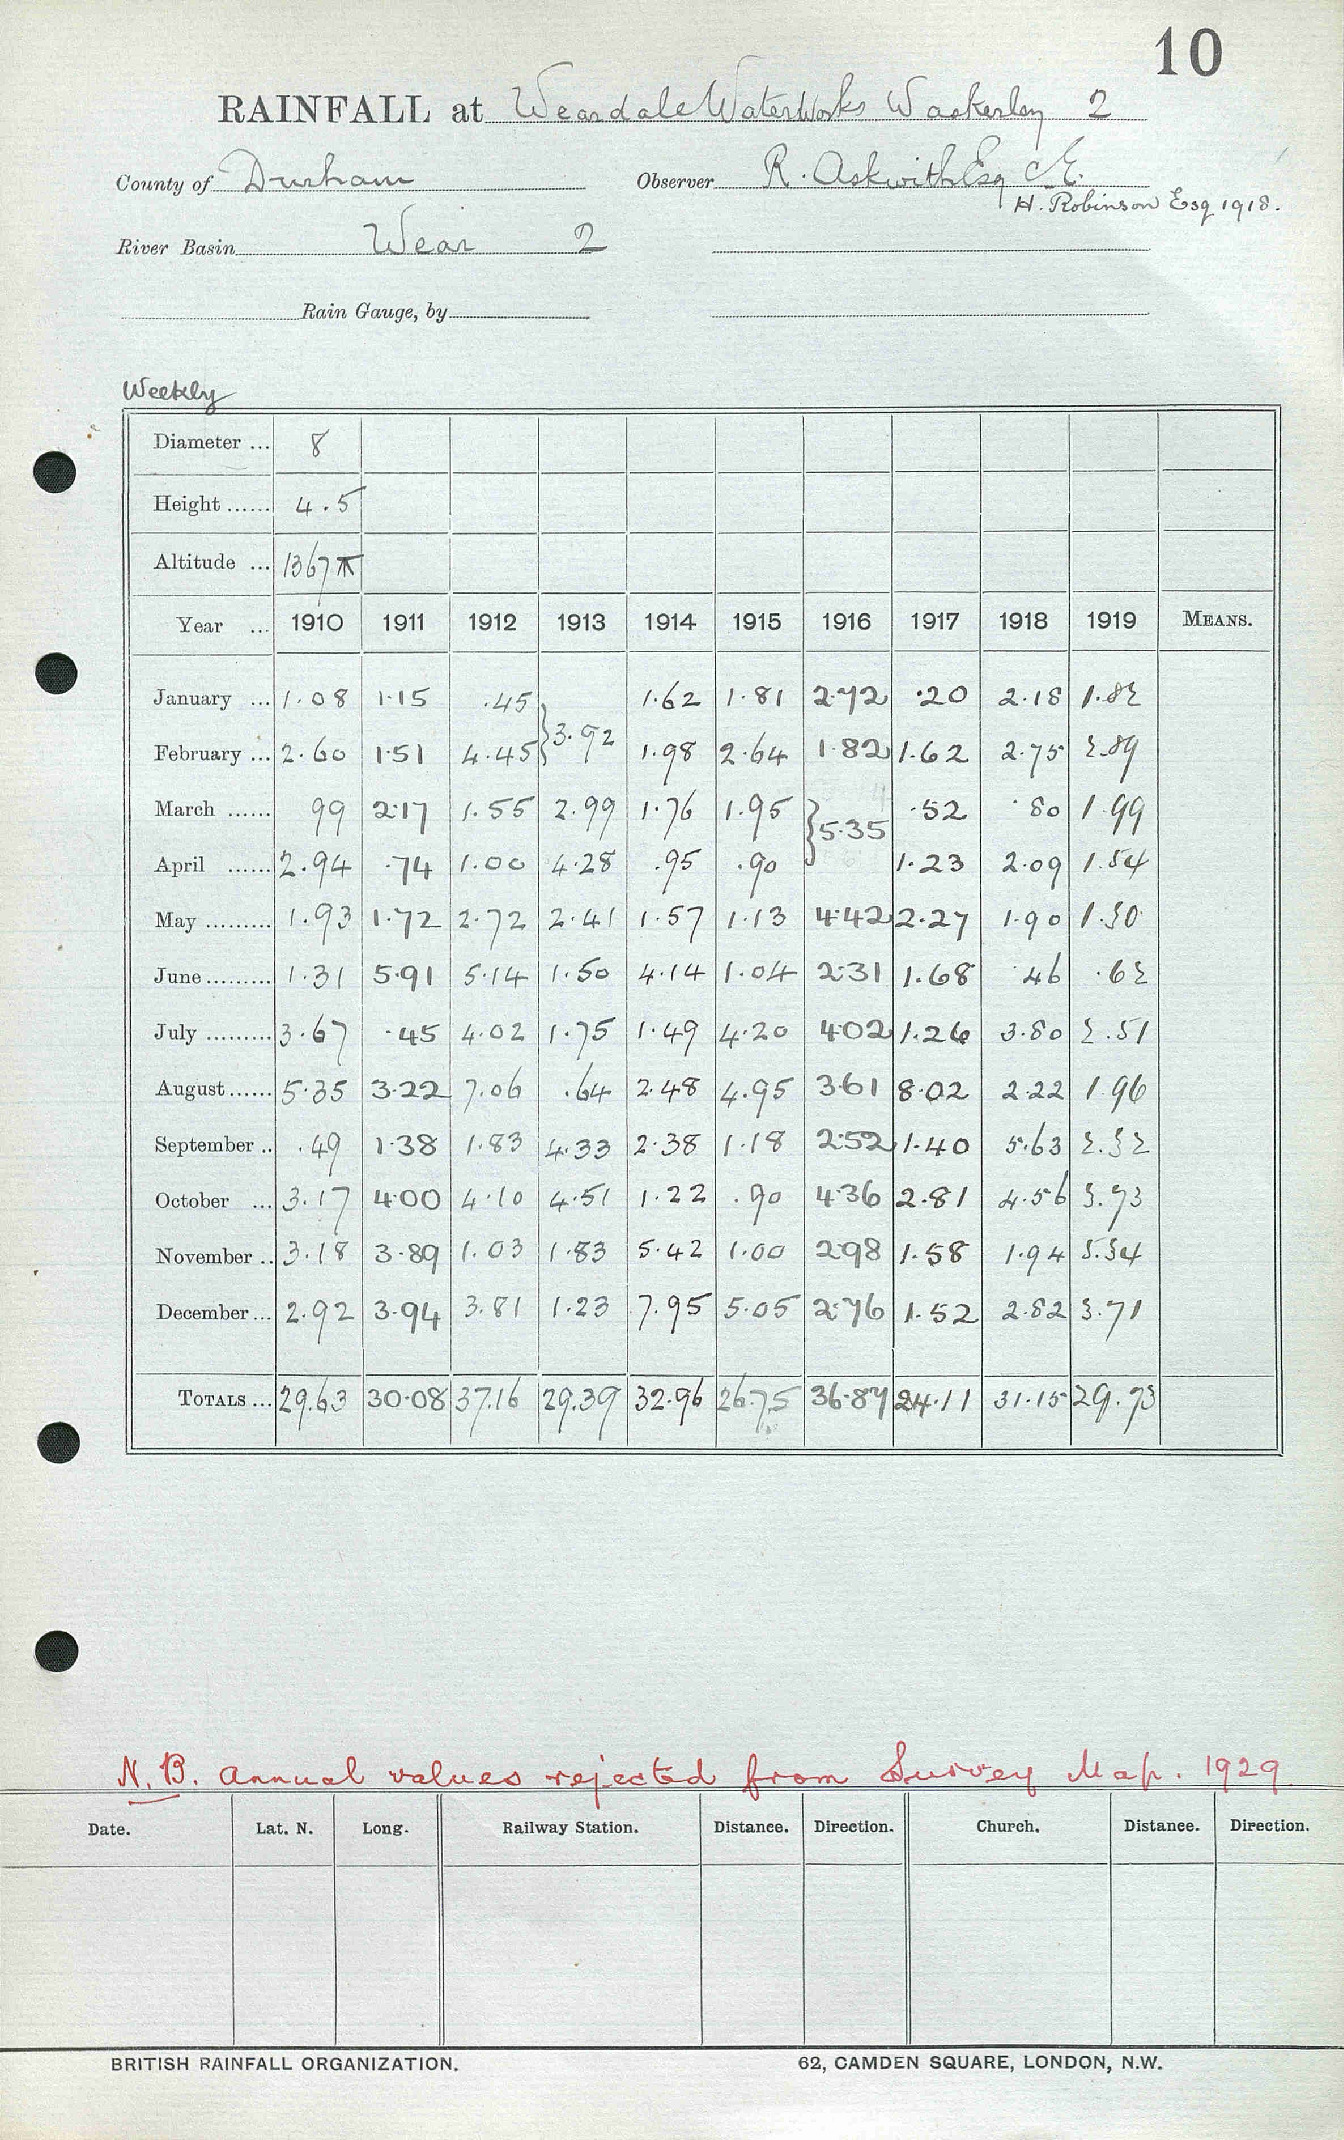 10
RAINFALL at Weardale Waterworks Waskerley 2
County of Durham Observer R. Askwith Esq C.E.
H. Robinson Esq 1918.
River Basin Wear 2
Rain Gauge, by
Weekly
Diameter ... 8
Height ...... 4.5
Altitude ... 1367
Year ... 1910 1911 1912 1913 1914 1915 1916 1917 1918 1919 MEANS.
January ... 1.08 1.15 .45 1.62 1.81 2.72 .20 2.18 1.82
February ... 2.60 1.51 4.45 }3.92 1.98 2.64 1.82 1.62 2.75 2.89
March ...... 99 2.17 1.55 2.99 1.76 1.95 }5.35 .52 .80 1.99
April ...... 2.94 .74 1.00 4.28 .95 .90 1.23 2.09 1.54
May ......... 1.93 1.72 2.72 2.41 1.57 1.13 4.42 2.27 1.90 1.30
June ......... 1.31 5.91 5.14 1.50 4.14 1.04 2.31 1.68 .46 .62
July ......... 3.67 .45 4.02 1.75 1.49 4.20 4.02 1.26 3.80 2.51
August ...... 5.35 3.22 7.06 .64 2.48 4.95 3.61 8.02 2.22 1.96
September .. .49 1.38 1.83 4.33 2.38 1.18 2.52 1.40 5.63 2.32
October ... 3.17 4.00 4.10 4.51 1.22 .90 4.36 2.81 4.56 3.73
November .. 3.18 3.89 1.03 1.83 5.42 1.00 2.98 1.58 1.94 5.34
December ... 2.92 3.94 3.81 1.23 7.95 5.05 2.76 1.52 2.82 3.71
TOTALS ... 29.63 30.08 37.16 29.39 32.96 26.75 36.87 24.11 31.15 29.73
N.B. Annual values rejected from Survey Map. 1929
Date. Lat. N. Long. Railway Station. Distance. Direction. Church. Distance. Direction.
BRITISH RAINFALL ORGANIZATION. 62, CAMDEN SQUARE, LONDON, N.W.